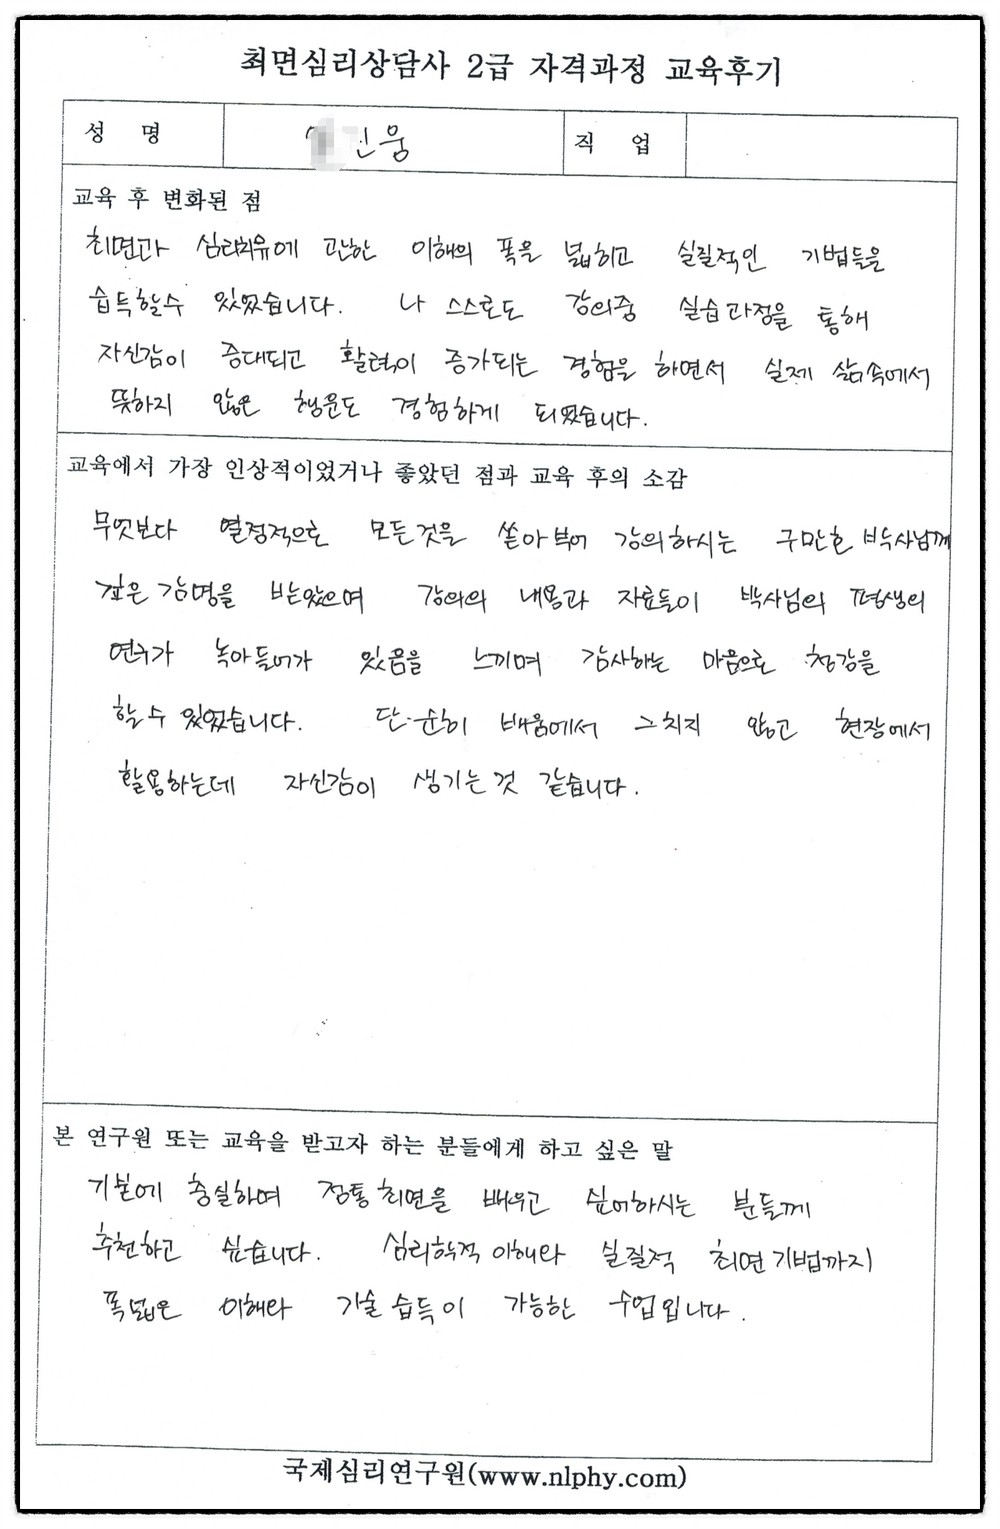 최면심리상담사 2급 자격과정 교육후기
성 명 인웅 직 업
교육 후 변화된 점
최면과 심리치유에 관한 이해의 폭을 넓히고 실질적인 기법들을
습득할수 있었습니다. 나 스스로도 강의중 실습과정을 통해
자신감이 증대되고 활력이 증가되는 경험을 하면서 실제 삶속에서
뜻하지 않은 행운도 경험하게 되었습니다.
교육에서 가장 인상적이었거나 좋았던 점과 교육 후의 소감
무엇보다 열정적으로 모든것을 쏟아부어 강의하시는 구만호 박사님께
깊은 감명을 받았으며 강의의 내용과 자료들이 박사님의 평생의
연구가 녹아들어가 있음을 느끼며 감사하는 마음으로 청강을
할수 있었습니다. 단순히 배움에서 그치지 않고 현장에서
활용하는데 자신감이 생기는것 같습니다.
본 연구원 또는 교육을 받고자 하는 분들에게 하고 싶은 말
기본에 충실하며 정통최면을 배우고 싶어하시는 분들께
추천하고 싶습니다. 심리학적 이해와 실질적 최면기법까지
폭넓은 이해와 기술습득이 가능한 수업입니다.
국제심리연구원(www.nlphy.com)